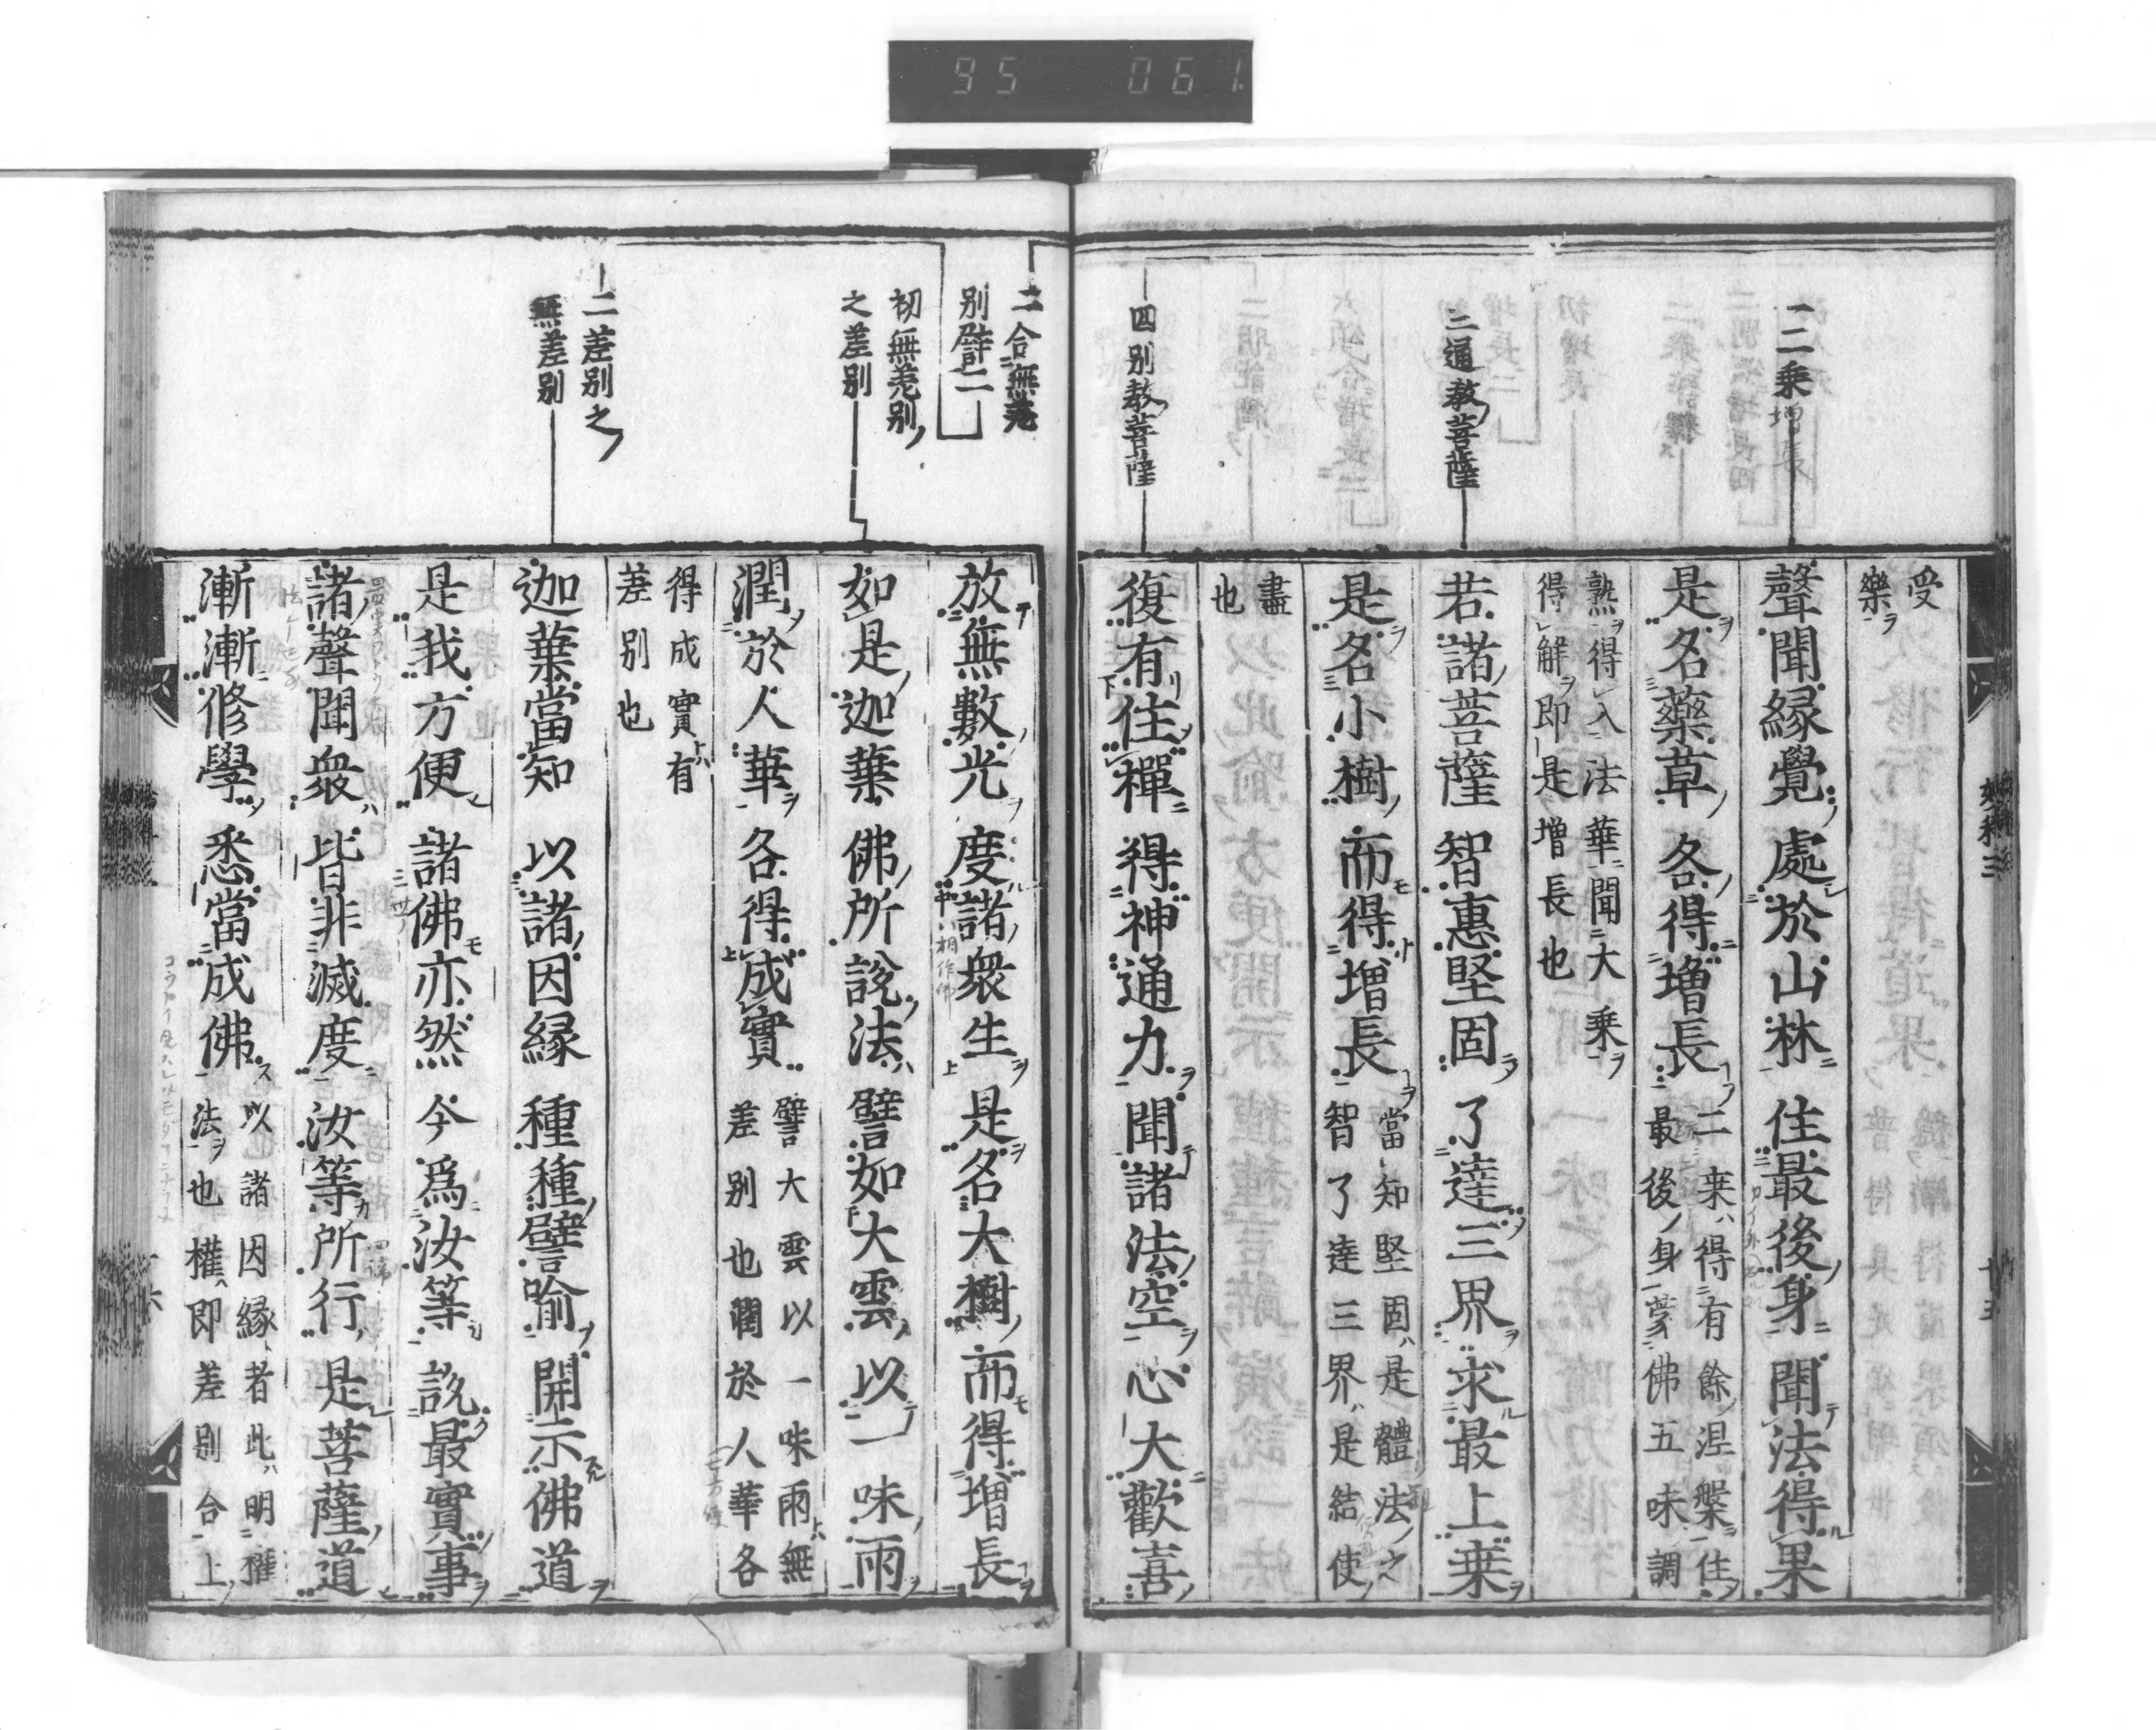 95 061
二二乗増長
三通教菩薩
四別教菩薩
受
樂
聲聞縁覺處於山林住最後身聞法得果
是名藥草各得增長
二乗得有餘涅槃住
最後身蒙佛五味調
熟得入法華聞大乗
得解即是增長也
若諸菩薩智惠堅固了達三界求最上乗
是名小樹而得增長
當知堅固是體法之
智了達三界是結使
盡
也
復有住禪得神通力聞諸法空心大歡喜
二合無差
別譬二
初無差別
之差別
二差別之
無差別
放無數光度諸衆生是名大樹而得增長
如是迦葉佛所說法譬如大雲以一味雨
潤於人華各得成實
譬大雲以一味雨無
差別也潤於人華各
得成實有
差別也
迦葉當知以諸因縁種種譬喻開示佛道
是我方便諸佛亦然今爲汝等說最實事
諸聲聞衆皆非滅度汝等所行是菩薩道
漸漸修學悉當成佛
以諸因縁者此明權
法也權即差別合上